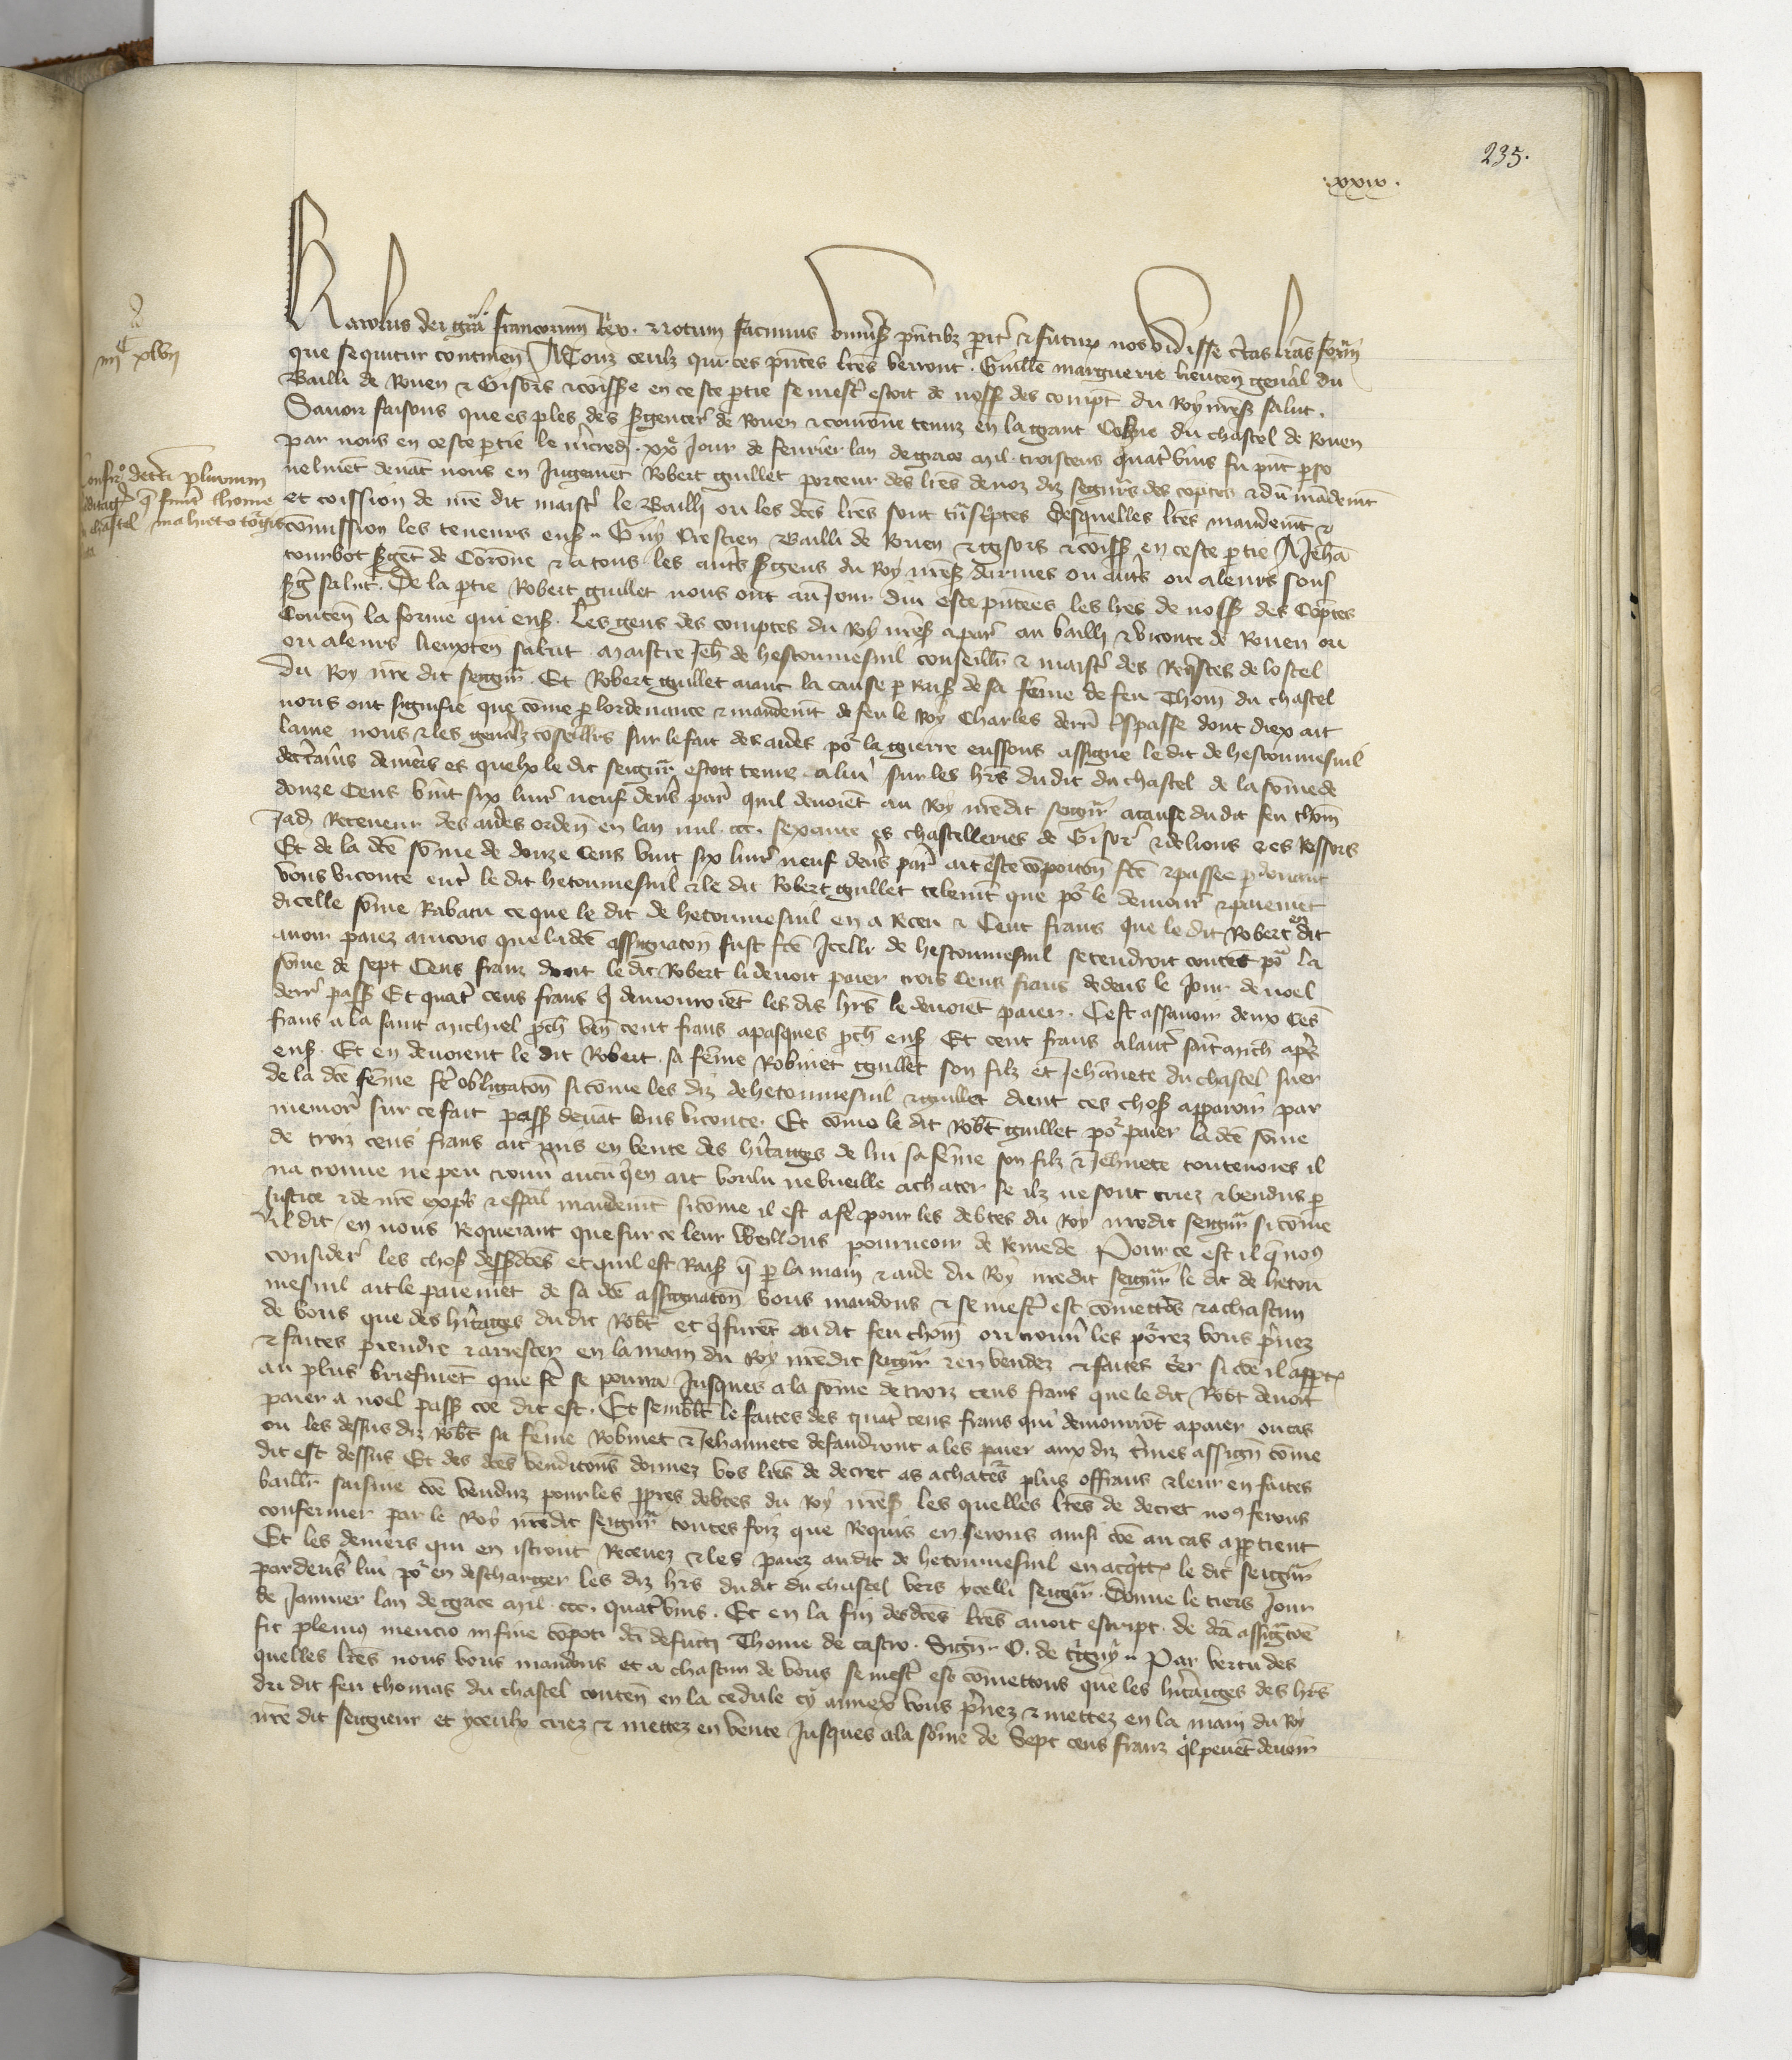 235.
xxiv.
Karolus dei gra francorum Rex. Notum facimus univsis pntibz parit et futuris nos vidisse ctas lras formam
que sequitur continen A Touz ceulz qui ces pntes lres verront. Guille marguerie lieuten genal du
Bailli de Rouen et Gisors et comiss en ceste ptie se mest estoit de noss des compt du Roy nres salut.
Savoir faisons que es ples des sgenter de Rouen et couronne tenuz en la grant Cohue du chastel de Rouen
par nous en ceste ptie le mcredi xxe Jour de fevrier lan de grace mil troiscens quat vins fu pnt pso
nelmet devat nous en Jugemet Robert guillet porteur des lres de noz diz segnrs des coptes et du mademt
et coission de nre dit maist le Bailli ou les dces lres sont tnscptes desquelles lres mandemt et
comission les teneurs ens Guy Crestien Bailli de Rouen et gisors et comiss en ceste ptie A Jeha
tourbot sget de Coronne et a tous les auts sgens du Roy nres darmes ou auts ou a leurs sous
sg salut. De la ptie Robert guillet nous ont au Jour dui este pntees les lres de noss des Coptes
Conten la forme qui ens. Les gens des comptes du Roy nres a par au bailli et viconte de Rouen ou
ou a leurs lieuxten salut maistre Jeh de hestoumesnil conseillr et maist des Reqstes de lostel
du Roy nre dit seignr Et Robert guillet aiant la cause p Rais de sa feme de feu Thom du chastel
nous ont signifie que come p lordenance et mandemt de feu le Roy Charles derr trspasse dont diex ait
lame nous et les genalz coseillrs sur le fait des aides por la guerre eussons assigne le dit de hestoumesnil
de ctains deniers es quelx le dit seignr estoit tenu a lui sur les hrs du dit du chastel de la somede
douze Cens vint six livr neuf dens par quil devoiet au Roy nredit seignr a cause du dit feu thom
Jad Receveur des aides orden en lan mil ccc. sexante es chastelleries de Gisor et de lions et es Ressors
Et de la dce some de douze Cens vint six livr neuf dens par ait este copoiton fce et passee p devant
vous viconte ent le dit hetoumesnil et le dit Robert guillet telemt que por le demour et paiemet
dicelle some Rabatu ce que le dit de hetoumesnil en a Receu et Cent frans que le dit Robert en dit
avoir paiez aincois que la dce assignaton fust fce Icelli de hestoumesnil se tendroit contet por la
some de sept Cens franz dont le dit Robert li devoit paier trois Cens frans dedens le Jour de noel
derr pass Et quat cens frans q demouroiet les dis hrs le devoiet paier. Cest assavoir deux ces
frans a la saint michiel pch ven cent frans a pasques pch ens Et cent frans a laut sait mich aps
ens. Et en devoient le dit Robert sa feme Robinet guillet son filz et Jehannete du chastel suer
de la dce feme fe obligaton si come les diz de hetoumesnil et guillet dient ces chos apparoir par
memor sur ce fait pass devat vous viconte. Et come le dit Robt guillet por paier la dce some
de troiz cens frans ait mis en vente des hitaiges de lui sa feme son filz et Jehnete toutevoies il
na trouve ne peu trouv aucu qen ait voulu ne vueille achater se ilz ne sont criez et vendus p
Justice et de nre expes et espal mandemt si come il est a fe pour les debtes du Roy nredit seignr si come
Il dit en nous Requerant que sur ce leur vueillons pourveoir de Remede Pour ce est il q nos
consider les chos dessdces et quil est Rais q p la main et aide du Roy nredit seignr le dit de hetou
mesnil ait le paiemet de sa dce assignaton vous mandons et se mest est comettos et a chascun
de vous que des hitaiges du dit Robt et q furet au dit feu thom ou trouv les porrez vous pnez
et faites prendre et arrester en la main du Roy nredit seignr et en vendez et faites cier si coe il apptient
au plus briefmet que fe se pourra Jusques a la some de troiz cens frans que le dit Robt devoit
paier a noel pass coe dit est. Et semblt le faites des quat cens frans qui demouront a paier ou cas
ou les dessus diz Robt sa feme Robinet et Jehannete defaudront a les paier aux diz tmes assign come
dit est dessus Et des dces venditons donnez vos lres de decret as achates plus offrans et leur en faites
baillr saisine coe venduz pour les ppres debtes du Roy nres les quelles lres de decret nos ferons
confermer par le Roy nredit seignr toutes foiz que Requis en serons ainsi coe au cas apptient
Et les deniers qui en istront Recevez et les paiez au dit de hetoumesnil en acqtt le dit seignr
pardevs lui por en descharger les diz hrs du dit du chastel vers ycelli seignr. Donne le tiers Jour
de Janvier lan de grace mil ccc. quatvins. Et en la fin des dces lres avoit escript. de dca assignoe
fit plenius mencio in fine copoti dci defucti Thome de castro. Sign O. de tguy Par vertu des
quelles lres nous vous mandons et a chascun de vous se mest est comettons que les hitaiges des hrs
du dit feu thomas du chastel conten en la cedule cy annex vous pnez et mettez en la main du Roy
nre dit seigneur et yceulx criez et mettez en vente Jusques a la some de Sept cens franz ql peuet devoir